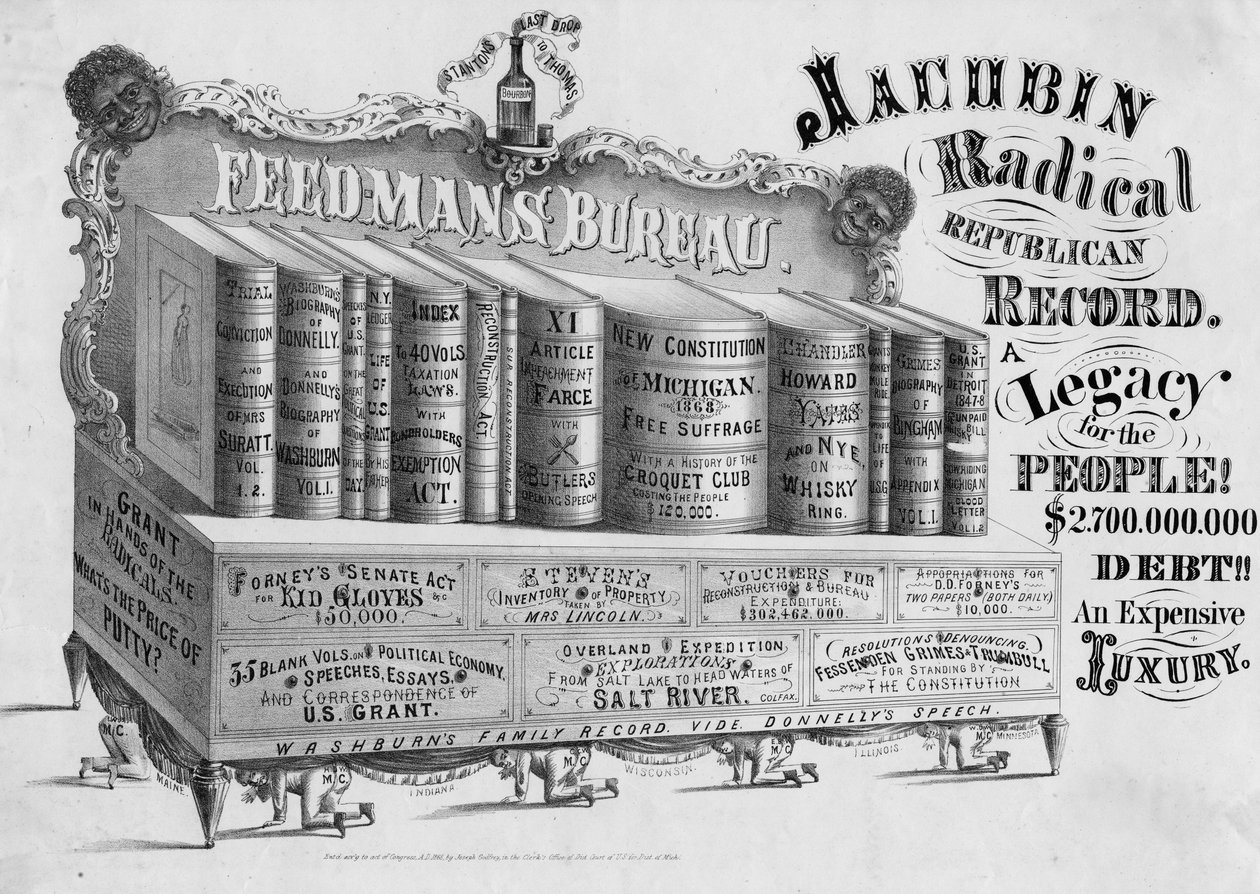 STANTON'S
LAST DROP
TO THOMAS
BOURBON
FEED-MAN'S BUREAU.
JACOBIN
Radical
REPUBLICAN
RECORD.
A
Legacy
for the
PEOPLE!
$2.700.000.000
DEBT!!
An Expensive
LUXURY.
TRIAL
CONVICTION
AND
EXECUTION
OF MRS
SURATT.
VOL.
1. 2.
WASHBURN'S
BIOGRAPHY
OF
DONNELLY.
AND
DONNELLY'S
BIOGRAPHY
OF
WASHBURN
VOL.1.
SPEECHES
OF U.S.
GRANT.
ON THE
GREAT
OF THE
DAY.
N.Y.
LEDGER
LIFE
OF
U.S.
GRANT
BY HIS
FATHER
INDEX
TO 40 VOLS.
TAXATION
LAWS.
WITH
BONDHOLDERS
EXEMPTION
ACT.
RECONSTRUCTION ACT
SUP. RECONSTRUCTION ACT
XI
ARTICLE
IMPEACHMENT
FARCE
WITH
BUTLERS
OPENING SPEECH
NEW CONSTITUTION
OF MICHIGAN.
1868
FREE SUFFRAGE
WITH A HISTORY OF THE
CROQUET CLUB
COSTING THE PEOPLE
$120,000.
CHANDLER
HOWARD
YATES
AND NYE,
ON
WHISKY
RING.
GRANTS
MONKEY
MULE
RIDE.
APPENDIX
TO
LIFE
OF
U.S.G
GRIMES
BIOGRAPHY
OF
BINGHAM
WITH
APPENDIX
VOL.I.
U.S.
GRANT
IN
DETROIT
1847-8
UNPAID
WHISKY BILL
COWHIDING
MICHIGAN.
BLOOD
LETTER
VOL 1.2
GRANT
IN HANDS OF THE
RADICALS.
WHAT'S THE PRICE OF
PUTTY?
FORNEY'S SENATE ACT
FOR KID GLOVES &C
$50,000.
STEVEN'S
INVENTORY OF PROPERTY
TAKEN BY
MRS LINCOLN.
VOUCHERS FOR
RECONSTRUCTION & BUREAU
EXPENDITURE:
$302,462.000.
APPOPRIATIONS FOR
D.D. FORNEY'S
TWO PAPERS (BOTH DAILY.)
$10,000.
35 BLANK VOLS. ON POLITICAL ECONOMY,
SPEECHES, ESSAYS.
AND CORRESPONDENCE OF
U.S. GRANT.
OVERLAND EXPEDITION,
EXPLORATIONS
FROM SALT LAKE TO HEAD WATERS OF
SALT RIVER. COLFAX.
RESOLUTIONS DENOUNCING.
FESSENDEN GRIMES & TRUMBULL
FOR STANDING BY
THE CONSTITUTION
WASHBURN'S FAMILY RECORD. VIDE. DONNELLY'S SPEECH.
M.C.
MAINE.
M.C.
INDIANA.
M.C.
WISCONSIN.
M.C.
ILLINOIS.
M.C.
MINNESOTA
Entd. acc'g to act of Congress, A.D. 1868, by Joseph Godfrey, in the Clerk's Office of Dist. Court of U.S. for Dist. of Mich.